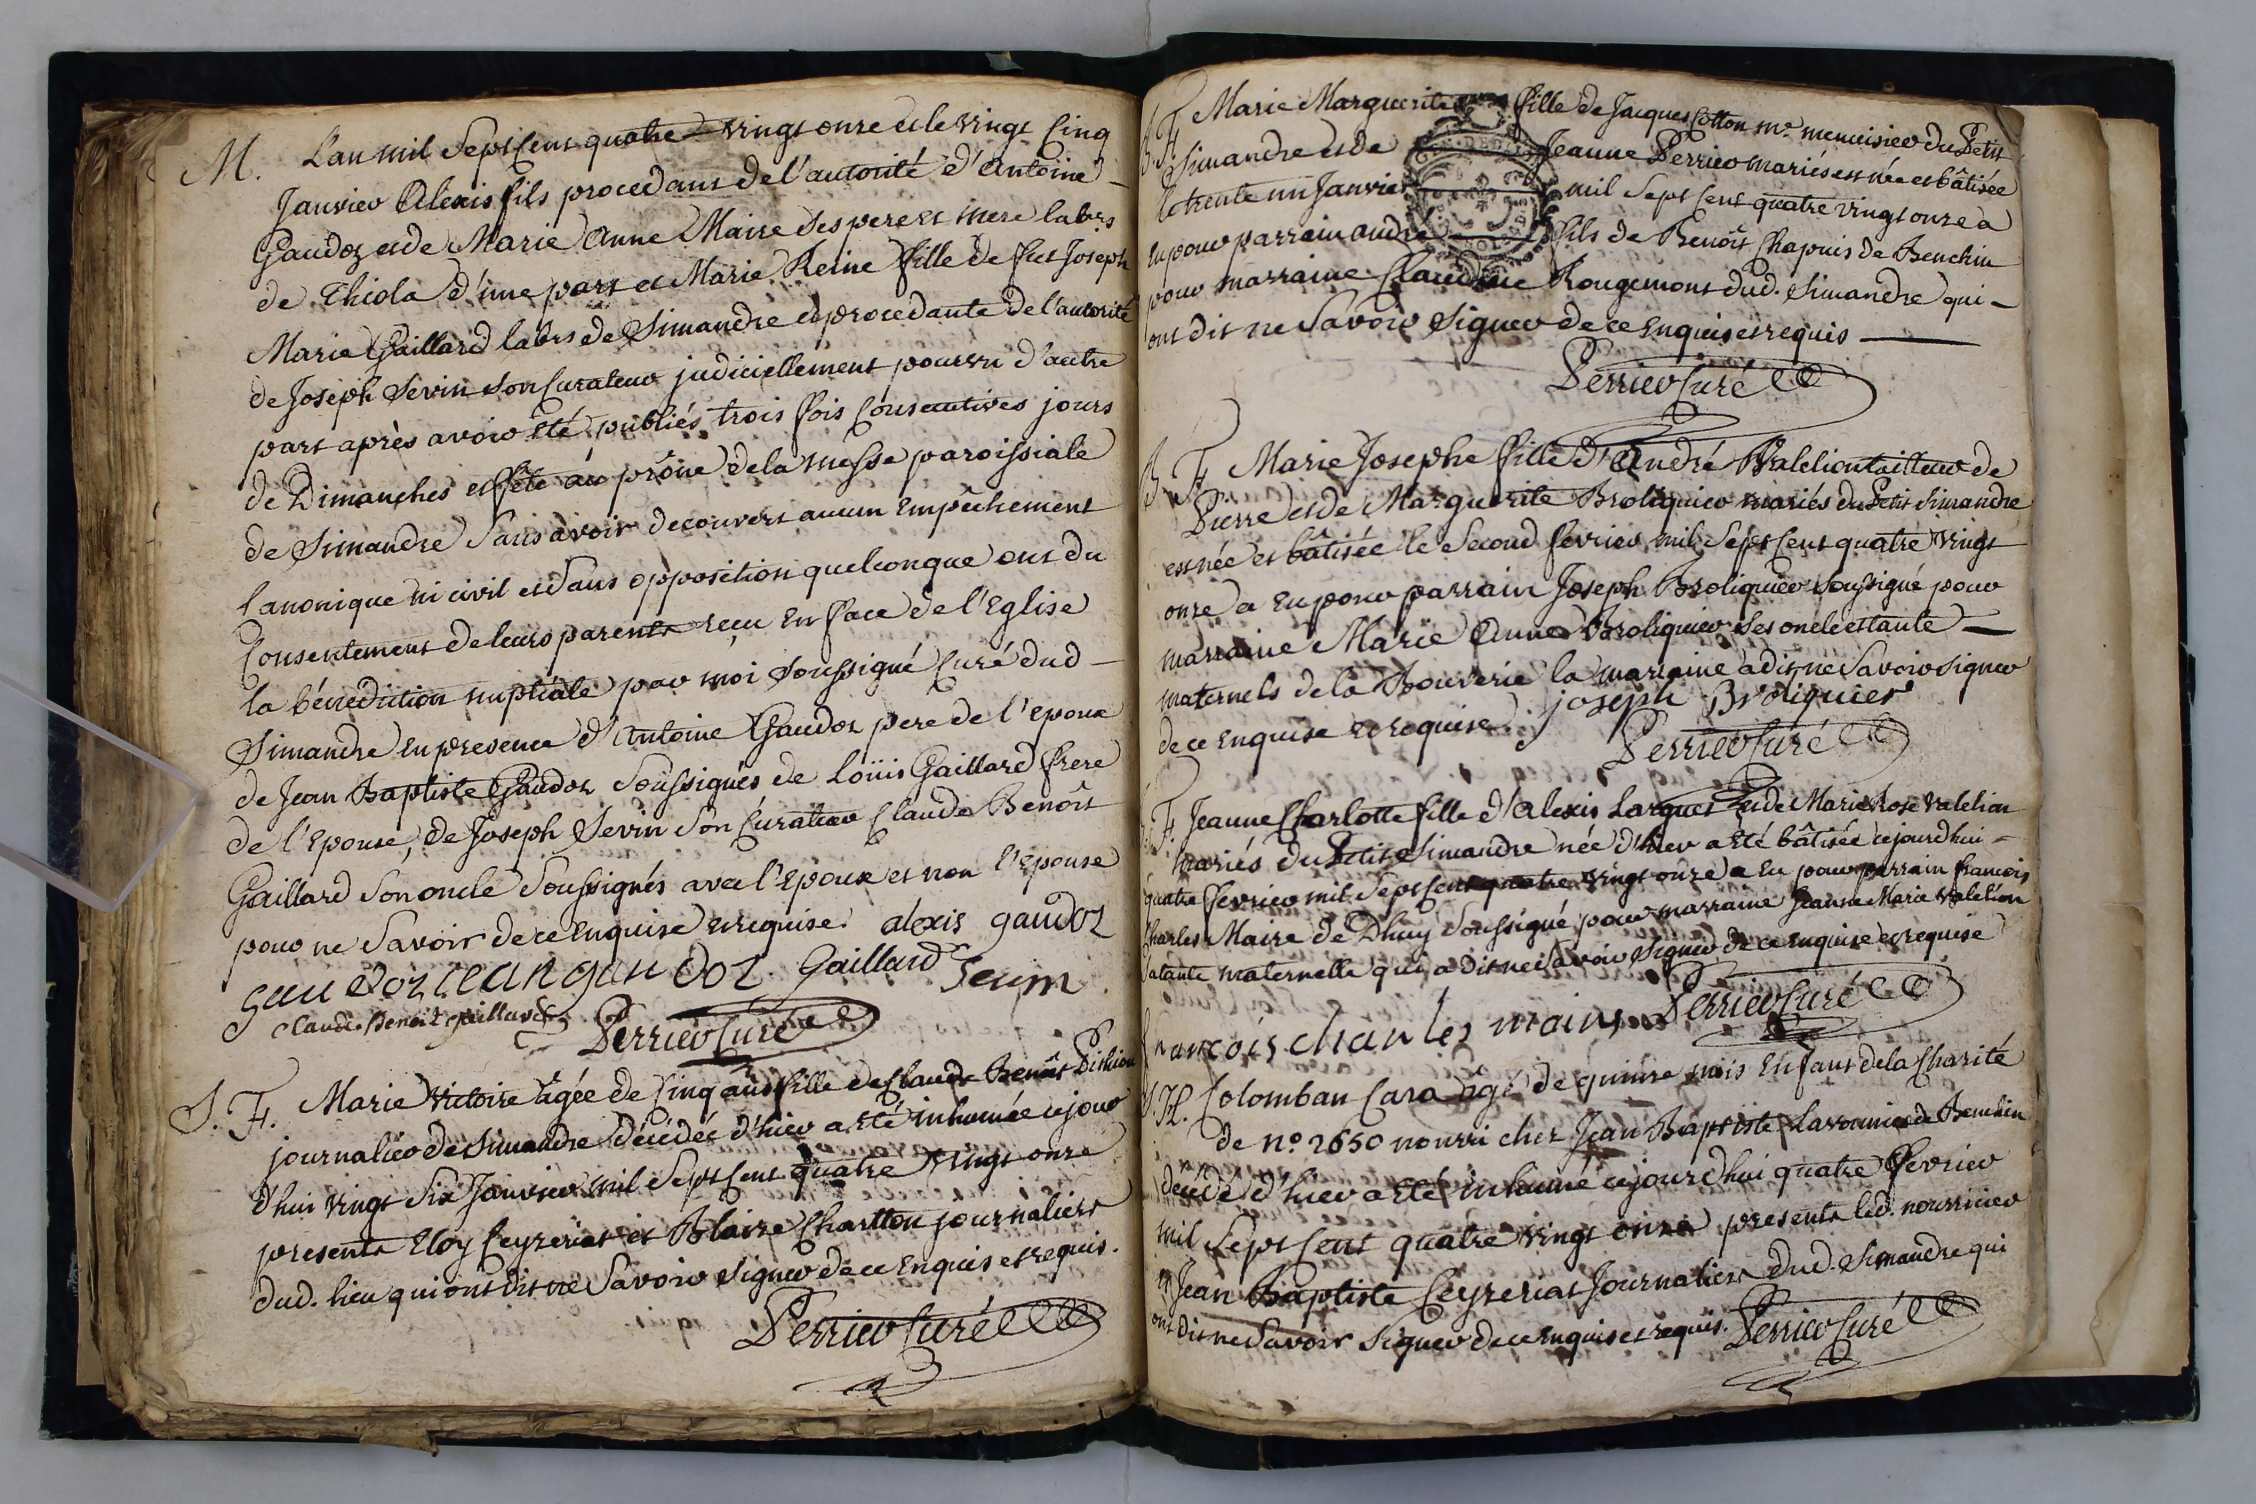 M. L'an mil sept cent quatre-vingt onze et le vingt cinq
Janvier Alexis fils procedant de l'autorité d'Antoine
Gaudoz et de Marie Anne Maire ses pere et mere labrs
de Thiola d'une part et Marie Reine fille de fut Joseph
Marie Gaillard labrs de Simandre et procedante de l'autorité
de Joseph Sevin son Curateur judiciellement pourvu d'autre
part après avoir été publiés trois fois consecutives jours
de Dimanches et fête au prône de la messe paroissiale
de Simandre sans avoir decouvert aucun empêchement
Canonique ni civil et sans opposition quelconque ont du
Consentement de leurs parents reçu en face de l'Eglise
la bénediction nuptiale par moi soussigné Curé dud -
Simandre en presence d'Antoine Gaudoz pere de l'epoux
de Jean Baptiste Gaudoz soussignés de Loüis Gaillard frere
de l'Epouse, de Joseph Sevin son Curateur Claude Benoît
Gaillard son oncle soussignés avec l'Epoux et non l'epouse
pour ne savoir de ce enquise et requise. alexis gaudoz
gaudoz jean gaudoz Gaillard Sevin
Claude Benoit gaillard Perrier Curé
S. F. Marie Victoire âgée de Cinq ans fille de Claude Benoît Pithion
journalier de Simandre décédée d'hier a été inhumée ce jour
d'hui vingt six Janvier mil sept cent quatre vingt onze
presents Eloy Ceyzeriat et Blaise Chartton journaliers
dud. lieu qui ont dit ne savoir signer de ce enquis et requis.
Perrier Curé
B. F. Marie Marguerite fille de Jacques Cotton me. menuisier du Petit
Simandre et de Jeanne Perrier mariés est née et bâtisée
le trente un Janvier mil sept cent quatre vingt onze a
eu pour parrain andré fils de Benoît Chapuis de Benchin
pour marraine Claudine Rougemont dud. Simandre qui -
ont dit ne savoir signer de ce enquis et requis
Perrier Curé
B. F. Marie Josephe fille d'André Valelion tailleur de
Pierre et de Marguerite Broliquier mariés du Petit Simandre
est née et bâtisée le second fevrier mil sept cent quatre vingt
onze a eu pour parrain Joseph Broliquier soussigné pour
marraine Marie Anne Broliquier ses oncle et tante
maternels de la Bouverie la marraine a dit ne savoir signer
de ce enquise et requise. joseph Broliquier
Perrier Curé
F. Jeanne Charlotte fille d'Alexis Larguet et de Marie Rose Valelion
mariés du Petit Simandre née d'hier a été bâtisée cejourd'hui -
quatre fevrier mil sept cent quatre vingt onze a eu pour parrain francois
Charles Maire de Dhuy soussigné pour marraine Jeanne Marie Valelion
sa tante maternelle qui a dit ne savoir signer de ce enquise et requise
francois charles maire Perrier Curé
S. H. Colomban Cara âgé de quinze mois Enfant de la Charité
de No. 2650 nourri chez Jean Baptiste Lavounier de Benchin
decedé d'hier a été inhumé cejourd'hui quatre fevrier
mil sept cent quatre vingt onze presents led. nourricier
et Jean Baptiste Ceyzeriat Journaliers dud. Simandre qui
ont dit ne savoir signer de ce enquis et requis. Perrier Curé